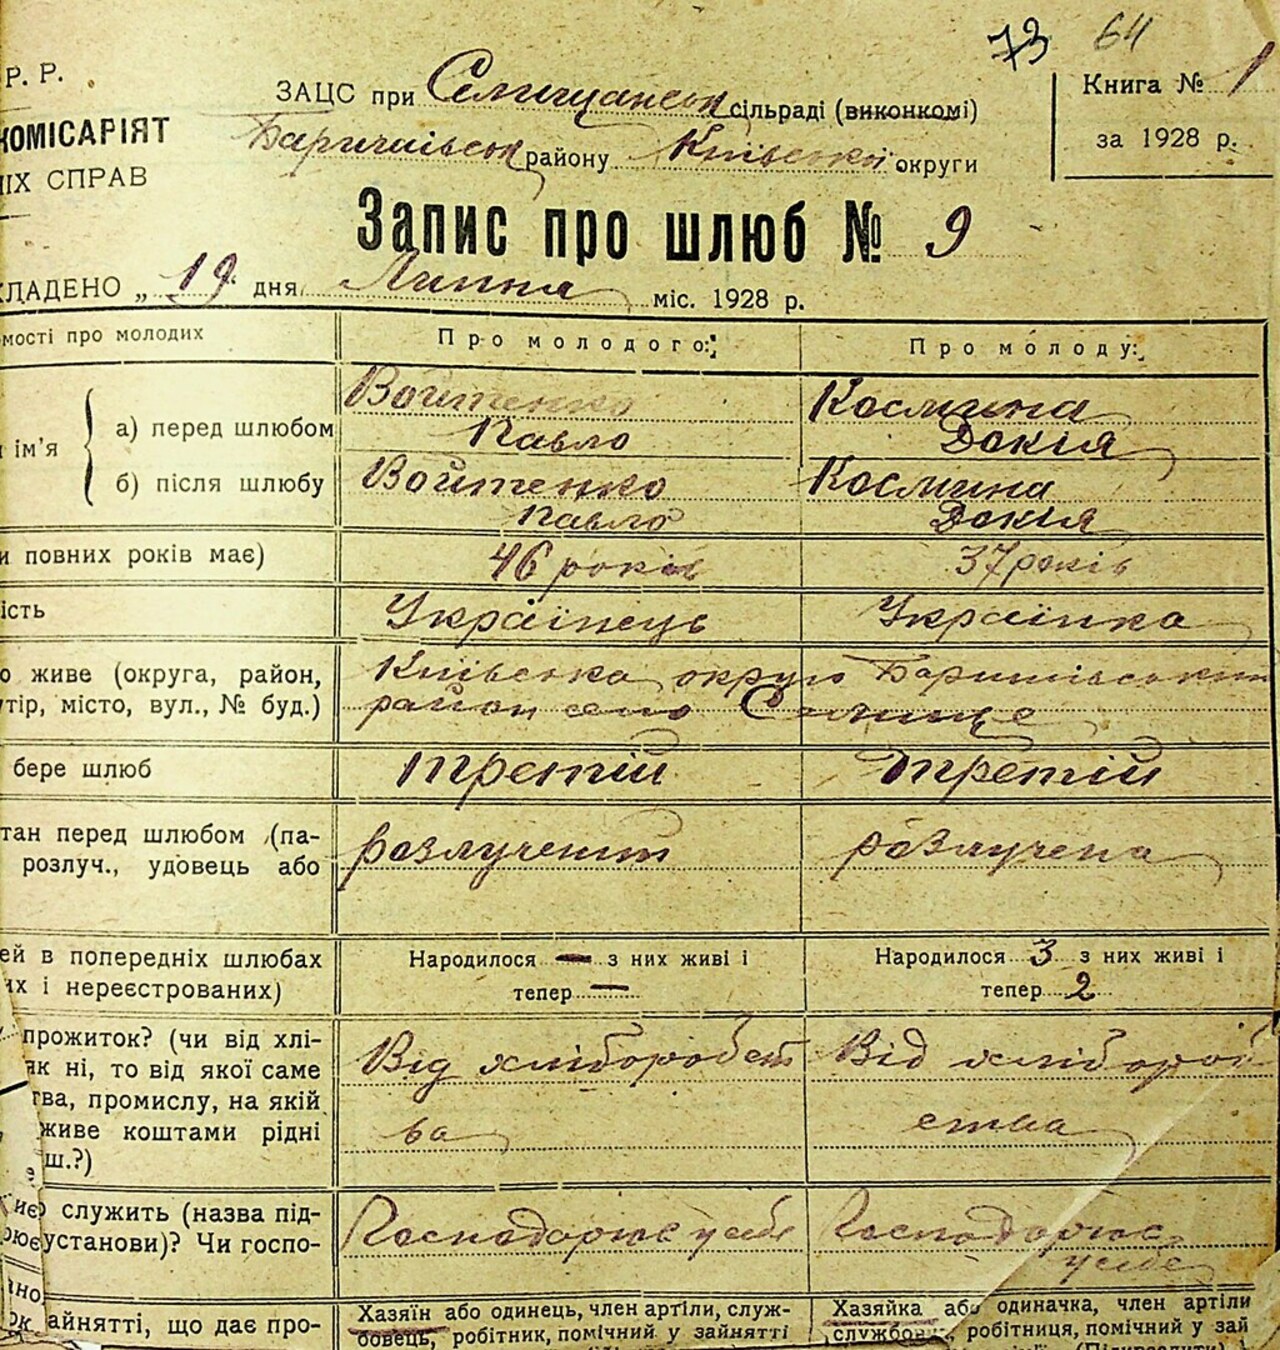 73 64
Р. Р.
ЗАЦС при Селищанськ сільраді (виконкомі)
Книга № 1
КОМІСАРІЯТ
за 1928 р.
Баришівськ району Київської округи
ІХ СПРАВ
Запис про шлюб № 9
КЛАДЕНО „ 19 " дня Липня міс. 1928 р.
мості про молодих
Про молодого:
Про молоду:
Войтенко
Космина
ім’я
а) перед шлюбом
Павло
Докія
б) після шлюбу
Войтенко
Космина
Павло
Докія
и повних років має)
46 років
37 років
ість
Українець
Українка
о живе (округа, район,
Київська округа Баришівський
утір, місто, вул., № буд.)
район село Селище
бере шлюб
третій
третій
тан перед шлюбом (па-
розлуч., удовець або
розлучений
розлучена
ей в попередніх шлюбах
Народилося — з них живі і
Народилося 3 з них живі і
их і нереєстрованих)
тепер —
тепер 2
прожиток? (чи від хлі-
як ні, то від якої саме
Від хліборобст
Від хлібороб
тва, промислу, на якій
живе коштами рідні
ва
ства
ш.?)
служить (назва під-
Господорює у себе
Господорює
установи)? Чи госпо-
у себе
айнятті, що дає про-
Хазяїн або одинець, член артілі, служ-
Хазяйка або одиначка, член артілі
бовець, робітник, помічний у зайнятті
службов, робітниця, помічний у зай